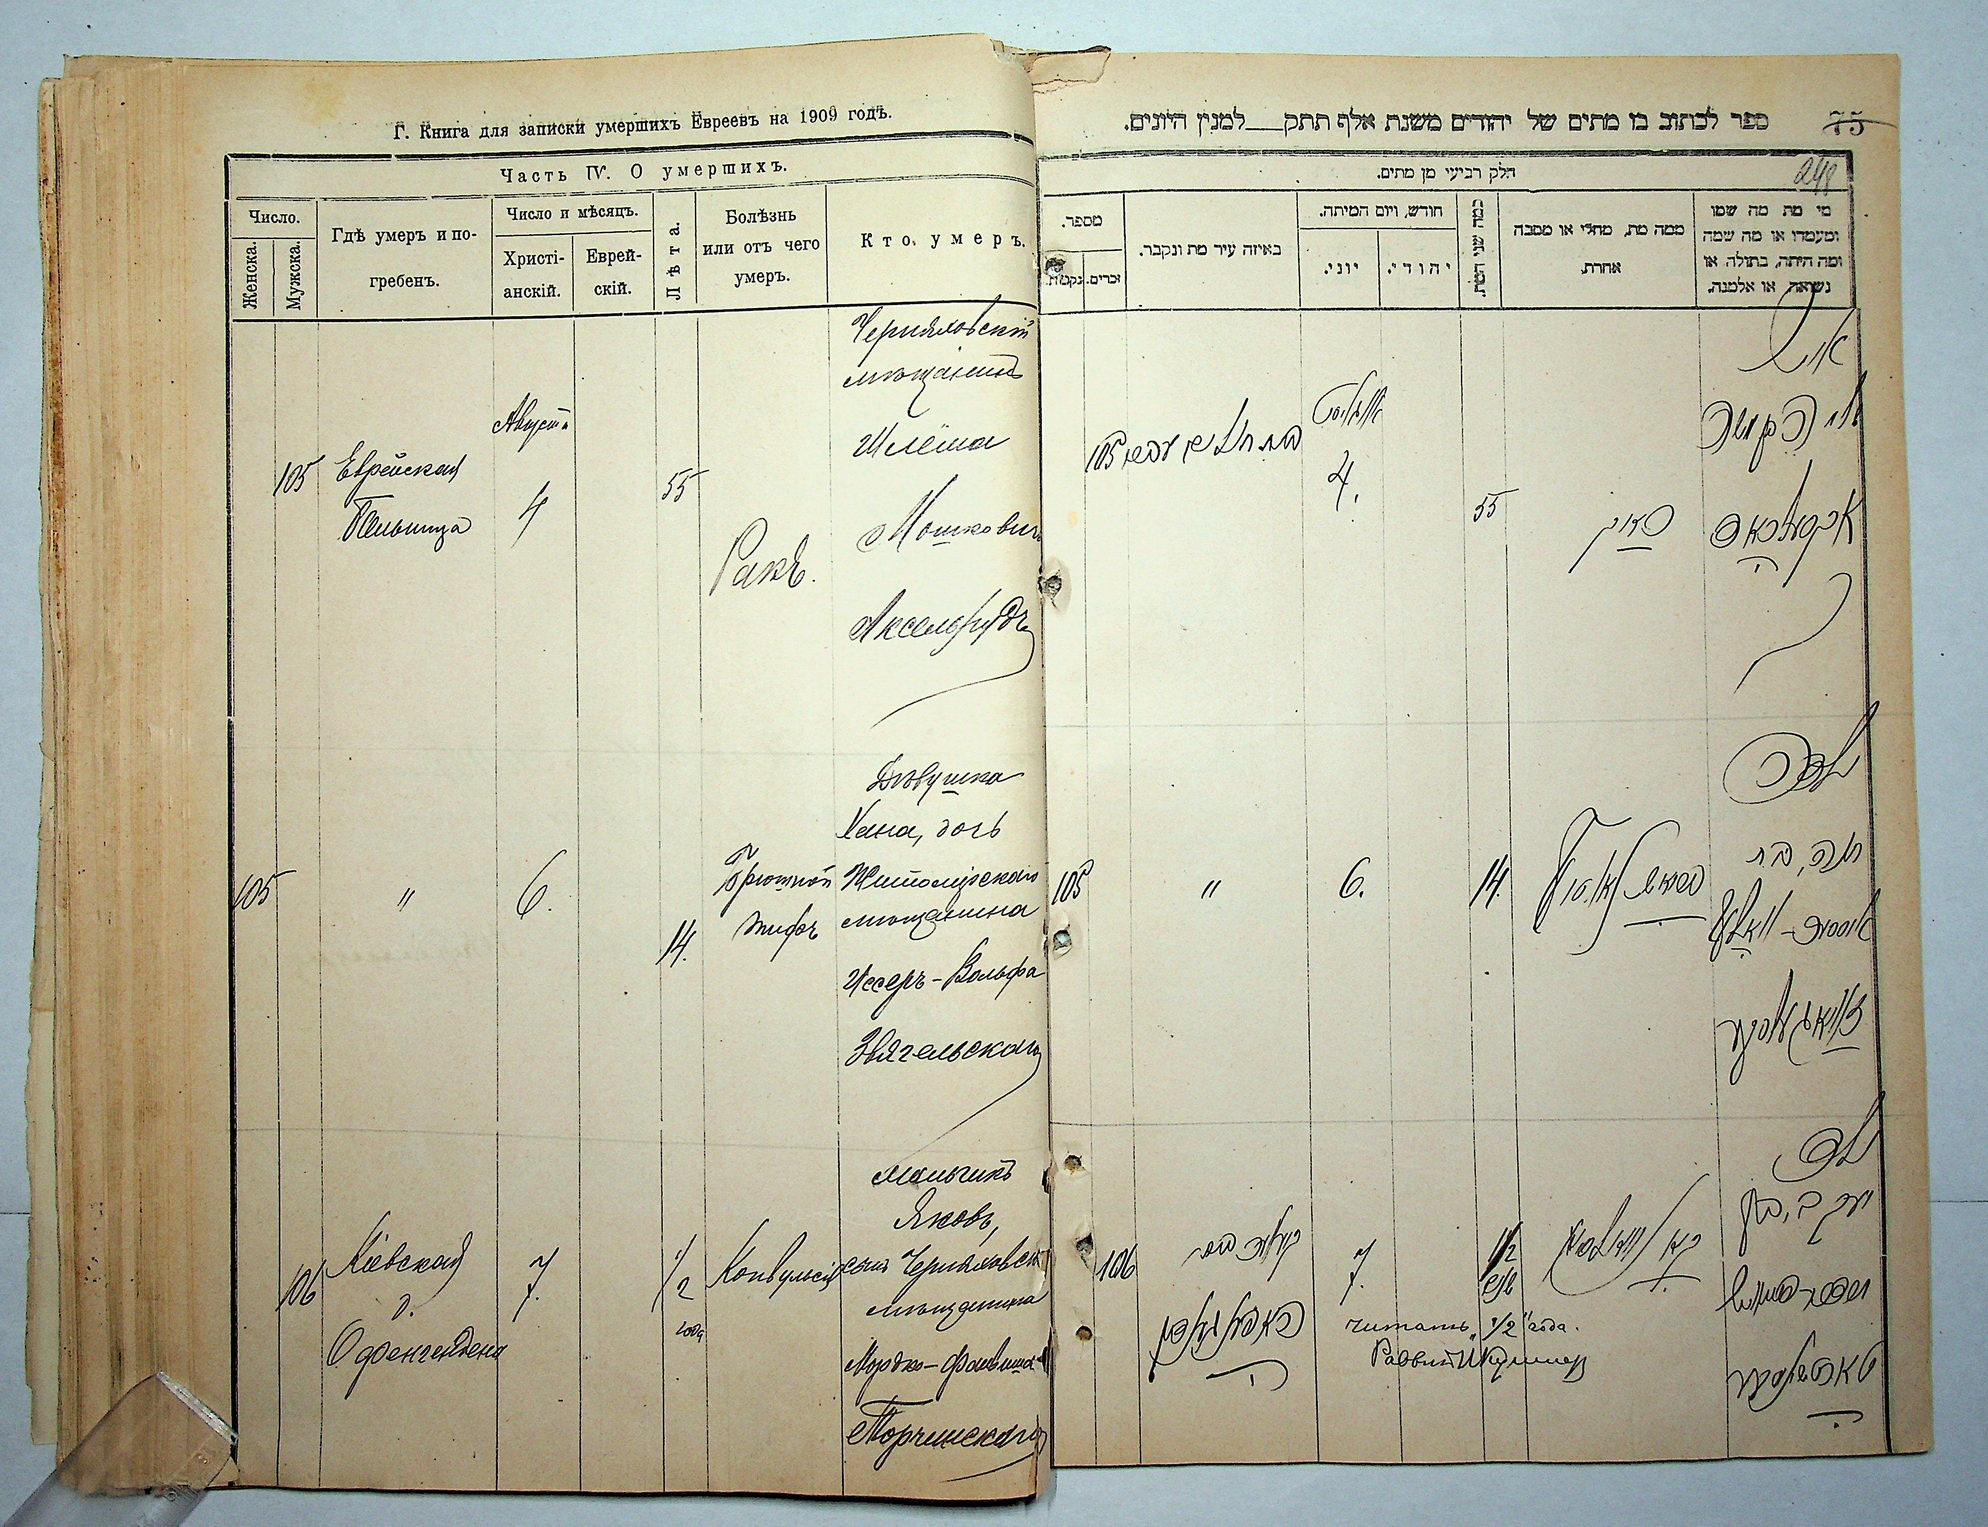 Г. Книга для записки умершихъ Евреевъ на 1909 годъ.
Часть IV. О умершихъ.
Число.
Женска.
Мужска.
Гдѣ умеръ и по-
гребенъ.
Число и мѣсяцъ.
Христі-
анскій.
Еврей-
скій.
Лѣта.
Болѣзнь
или отъ чего
умеръ.
Кто умеръ.
105
Еврейская
Больница
Августа
4
55
Ракъ.
Черняховскій
мѣщанинъ
Шлёма
Мошковичъ
Аксельрудъ
105
"
6.
14.
Брюшной
тифъ
Дѣвушка
Хана, дочь
Житомірскаго
мѣщанина
Иссеръ-Вольфа
Звягельскаго
106
Кіевская
д.
Офенгендена
7.
1/2
года
Конвульсія
мальчикъ
Яковъ,
сынъ Черняховск
мѣщанина
Мордко-Файвиша
Торчинскаго
ספר לכתוב בו מתים של יהודים משנת אלף תתק___למנין היונים.
75
248
חלק רביעי מן מתים.
מספר.
נקבות.
זכרים.
באיזה עיר מת ונקבר.
חודש, ויום המיתה.
יוני.
יהודי.
כמה שני המת.
ממה מת, מחלי או מסבה
אחרת.
מי מת מה שמו
ומעמדו או מה שמה
ומה היתה, בתולה או
נשואה או אלמנה.
105
4.
55
איש
105
"
6.
14.
ילדה
חנה, בת
איסר-וואלף
106
7.
1/2
שנה
ילד
יעקב, בן
читать "1/2" года.
Раввинъ